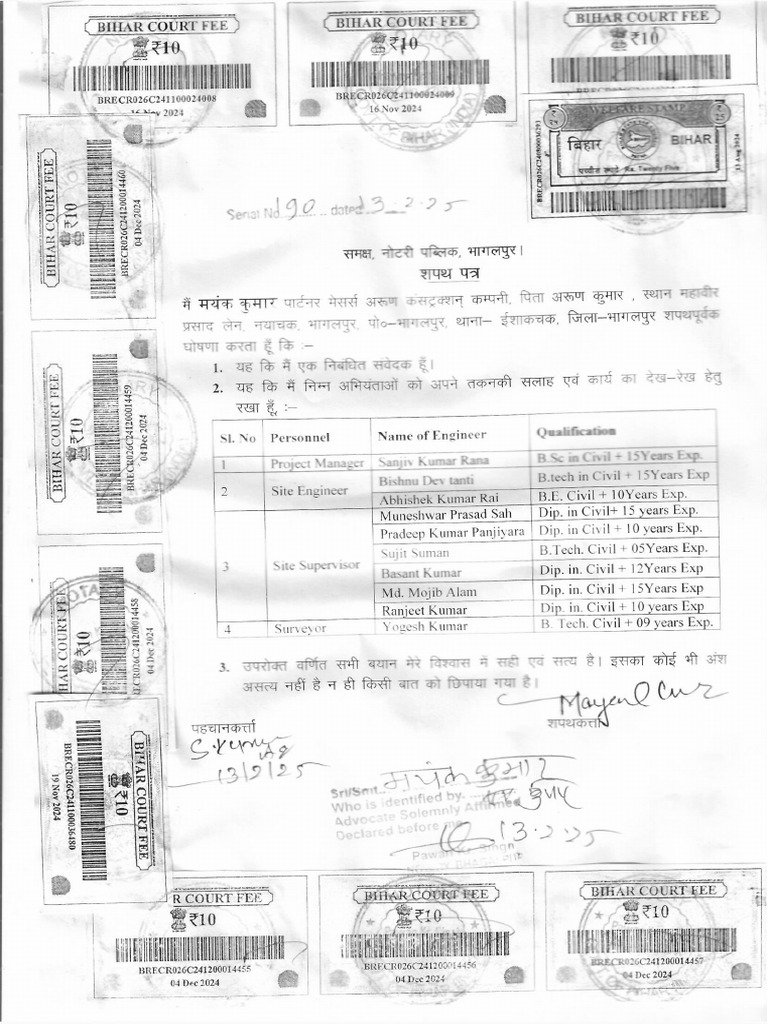 BIHAR COURT FEE
₹10
BRECR026C241100024008
16 Nov 2024
BIHAR COURT FEE
₹10
BRECR026C241100024009
16 Nov 2024
BIHAR COURT FEE
₹10
WELFARE STAMP
बिहार
BIHAR
पच्चीस रुपये Rs. Twenty Five
13 Aug 2024
BIHAR COURT FEE
₹10
BRECR026C241200014460
04 Dec 2024
Serial No. 90 dated 13-2-25
समक्ष, नोटरी पब्लिक, भागलपुर।
शपथ पत्र
मैं मयंक कुमार पार्टनर मेसर्स अरूण कंसट्रक्शन् कम्पनी, पिता अरूण कुमार , स्थान महावीर
प्रसाद लेन, नयाचक, भागलपुर, पो०–भागलपुर, थाना– ईशाकचक, जिला–भागलपुर शपथपूर्वक
घोषणा करता हूँ कि :–
1. यह कि मैं एक निबंधित संवेदक हूँ।
2. यह कि मैं निम्न अभियंताओं को अपने तकनकी सलाह एवं कार्य का देख–रेख हेतु
रखा हूँ, :–
Sl. No Personnel Name of Engineer Qualification
1 Project Manager Sanjiv Kumar Rana B.Sc in Civil + 15Years Exp.
2 Site Engineer Bishnu Dev tanti B.tech in Civil + 15Years Exp
Abhishek Kumar Rai B.E. Civil + 10Years Exp.
3 Site Supervisor Muneshwar Prasad Sah Dip. in Civil+ 15 years Exp.
Pradeep Kumar Panjiyara Dip. in Civil + 10 years Exp.
Sujit Suman B.Tech. Civil + 05Years Exp.
Basant Kumar Dip. in. Civil + 12Years Exp
Md. Mojib Alam Dip. in. Civil + 15Years Exp
Ranjeet Kumar Dip. in. Civil + 10 years Exp
4 Surveyor Yogesh Kumar B. Tech. Civil + 09 years Exp.
3. उपरोक्त वर्णित सभी बयान मेरे विश्वास में सही एवं सत्य है। इसका कोई भी अंश
असत्य नहीं है न ही किसी बात को छिपाया गया है।
पहचानकर्त्ता
13/2/25
शपथकर्त्ता
Sri/Smt. मयंक कुमार
Who is identified by
Advocate Solemnly Affirmed
Declared before me
13-2-25
BIHAR COURT FEE
₹10
BRECR026C241200014459
04 Dec 2024
BIHAR COURT FEE
₹10
BRECR026C241200014458
04 Dec 2024
BIHAR COURT FEE
₹10
BRECR026C241100036480
19 Nov 2024
R COURT FEE
₹10
BRECR026C241200014455
04 Dec 2024
BIHAR COURT FEE
₹10
BRECR026C241200014456
04 Dec 2024
BIHAR COURT FEE
₹10
BRECR026C241200014457
04 Dec 2024